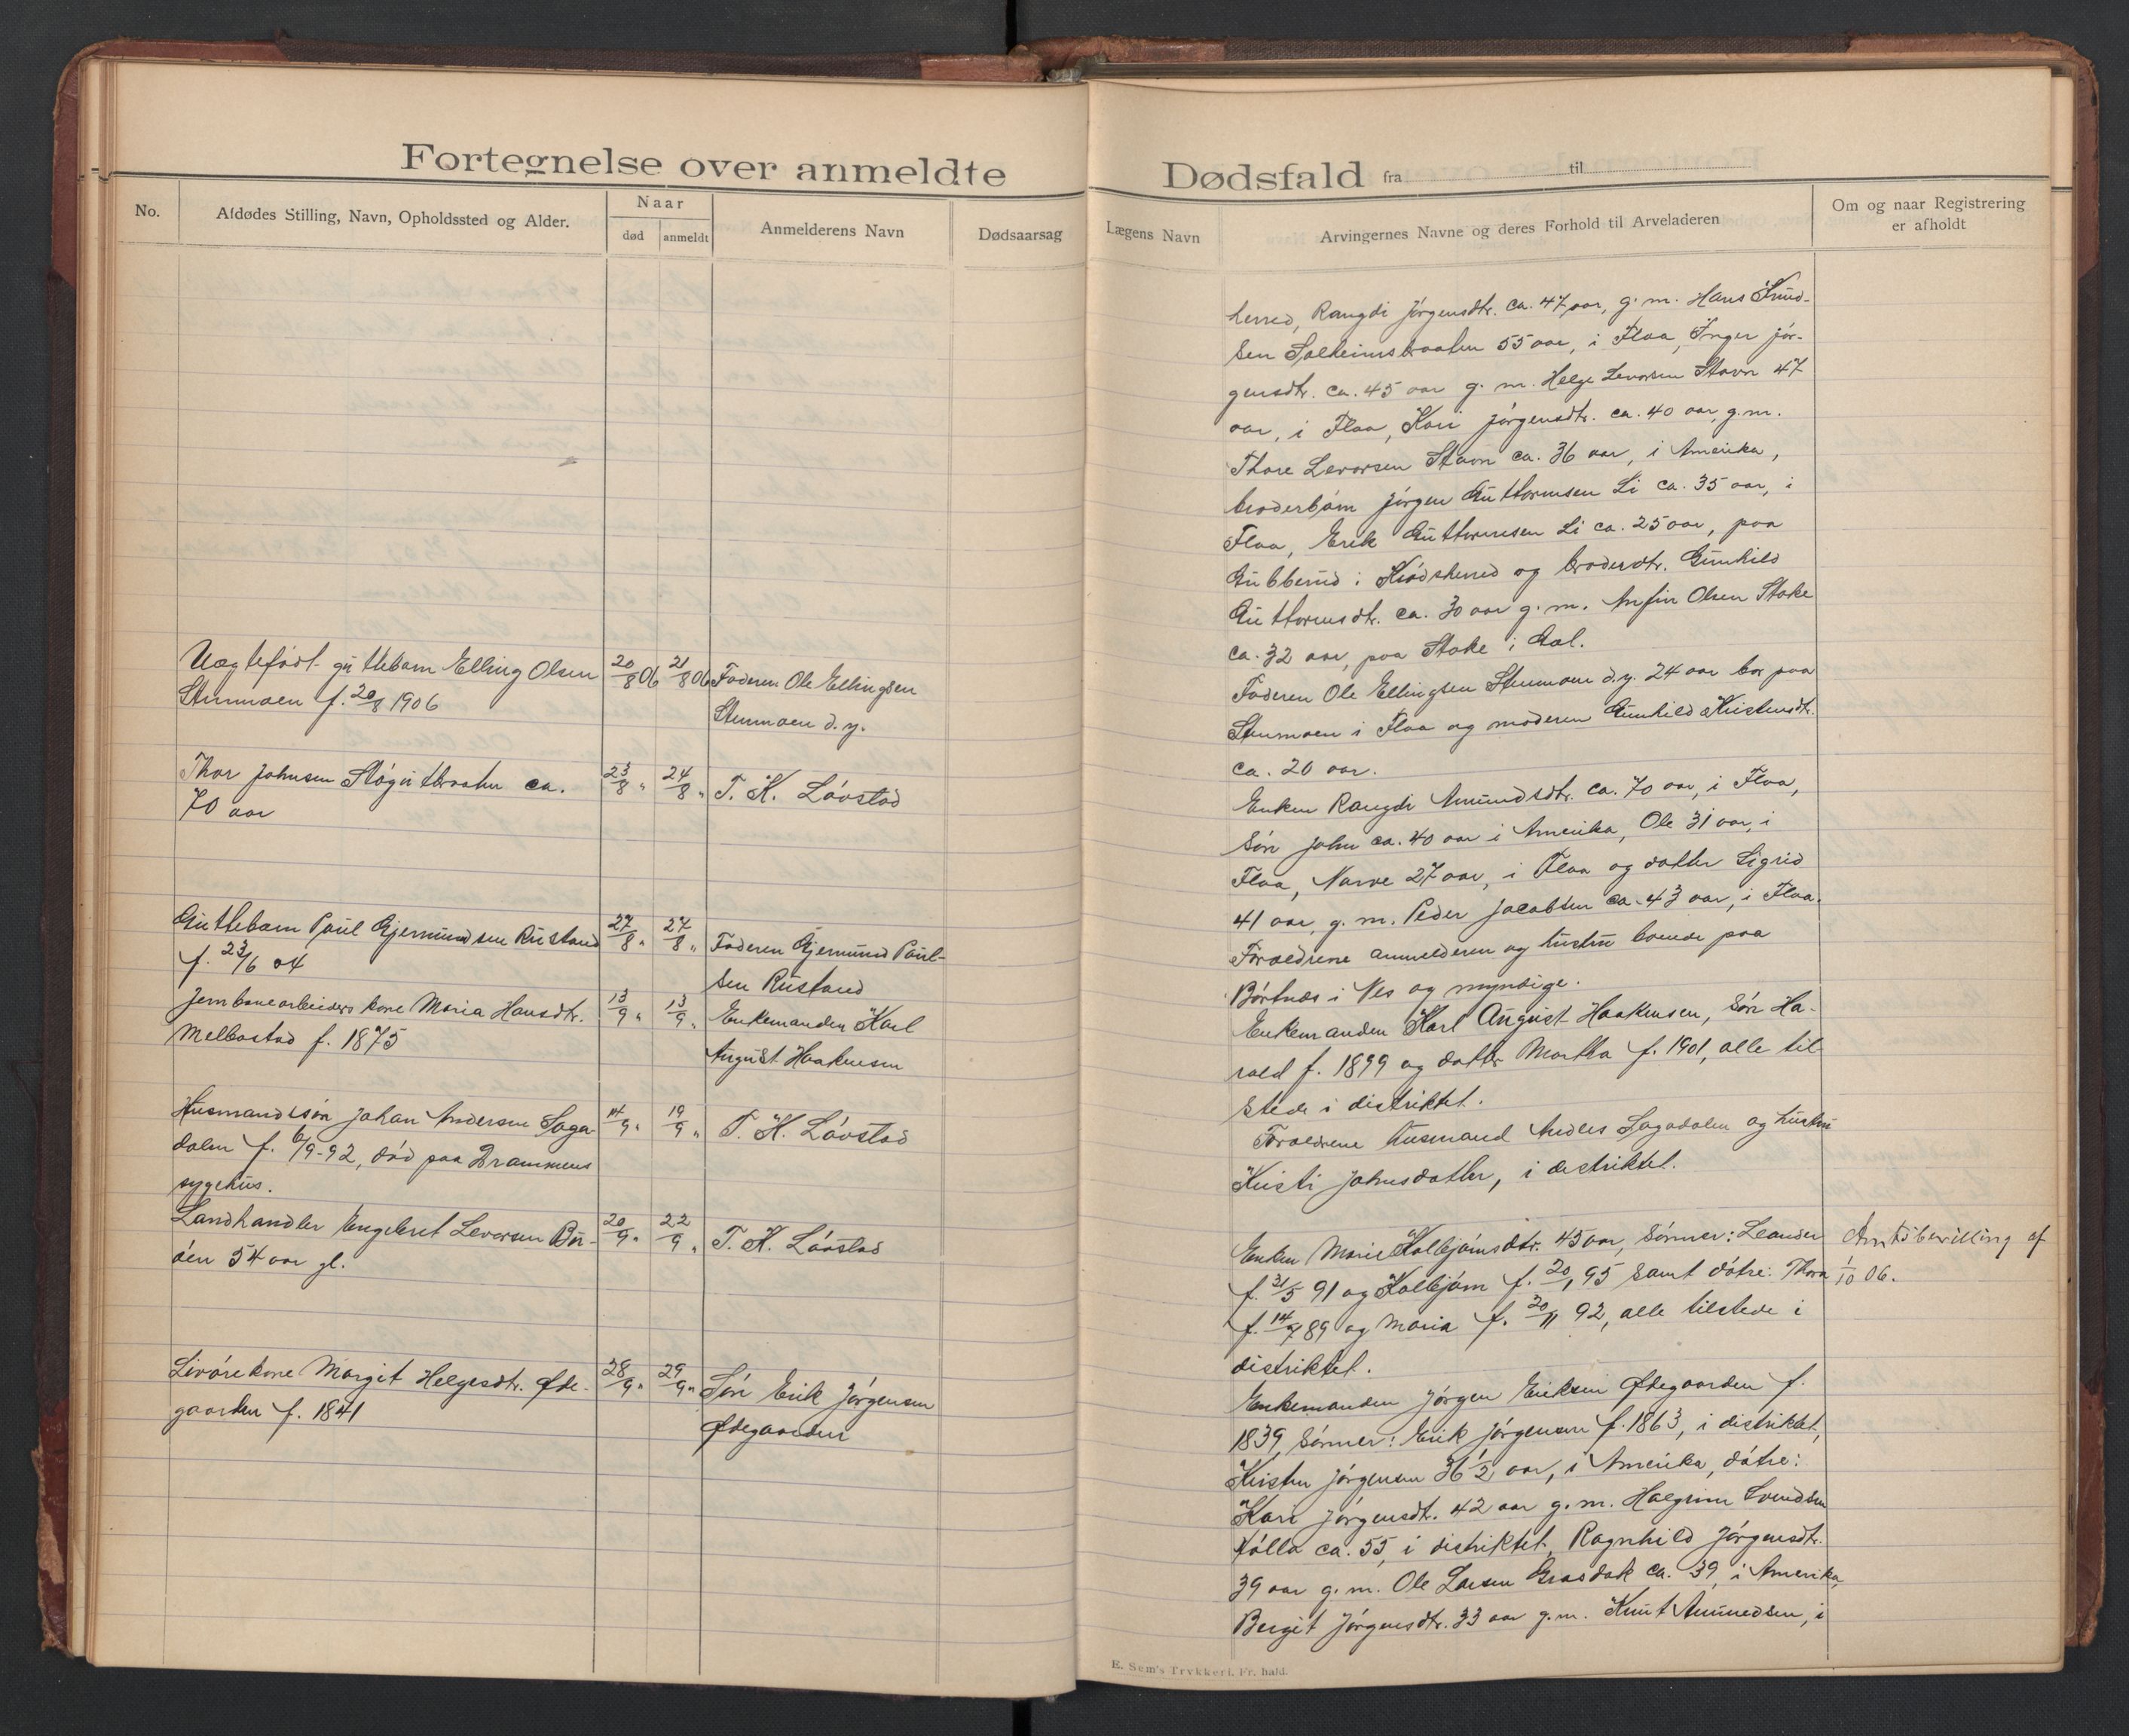 Fortegnelse over anmeldte
No.
Afdødes Stilling, Navn, Opholdssted og Alder.
Naar
død
anmeldt
Anmelderens Navn
Dødsaarsag
Uægtefødt guttebarn Elling Olsen
Stenmoen f. 20/8 1906
20/8 06
21/8 06
Faderen Ole Ellingsen
Stenmoen d.y.
Thor Johnsen ca.
70 aar
23/8 "
24/8 "
T. K. Lövstad
Guttebarn Paul Gjermundsen Rustand
f. 23/6 04
27/8 "
27/8 "
Faderen Gjermund Paul-
sen Rustand
Jernbanearbeiders kone Maria Hansdtr.
Melbostad f. 1875
13/9 "
13/9 "
Enkemanden Karl
August Haakensen
Husmandssön Johan Andersen Saga-
dalen f. 6/9-92, död paa Drammens
sygehus.
14/9 "
19/9 "
T. K. Lövstad
Landhandler Engebret Leversen Bru-
öen 54 aar gl.
20/9 "
22/9 "
T. K. Lövstad
Livörekone Margit Helgesdtr. Øde-
gaarden f. 1841
28/9 "
29/9 "
Sön Erik Jörgensen
Ødegaarden
Dødsfald fra til
Lægens Navn
Arvingernes Navne og deres Forhold til Arveladeren
Om og naar Registrering
er afholdt
herred, Rangdi Jörgensdtr. ca. 47 aar, g. m. Hans Knud-
sen Solheimsbraaten 55 aar, i Flaa, Inger Jör-
gensdtr. ca. 45 aar g. m. Helge Levorsen Stavn 47
aar, i Flaa, Kari Jörgensdtr. ca. 40 aar, g. m.
Thore Levorsen Stavn ca. 36 aar, i Amerika,
broderbörn Jörgen Guttormsen Li ca. 35 aar, i
Flaa, Erik Guttormsen Li ca. 25 aar, paa
Gubberud i Krödsherred og broderdtr. Gunhild
Guttormsdtr. ca. 30 aar g. m. Anfin Olsen Stake
ca. 32 aar, paa Stake i Aal.
Faderen Ole Ellingsen Stenmoen d.y. 24 aar bor paa
Stenmoen i Flaa og moderen Gunhild Kristensdtr.
ca. 20 aar.
Enken Rangdi Amundsdtr. ca. 70 aar, i Flaa,
Sön John ca. 40 aar i Amerika, Ole 31 aar, i
Flaa, Narve 27 aar, i Flaa og datter Sigrid
41 aar, g. m. Peder Jacobsen ca. 43 aar, i Flaa.
Foraeldrene anmelderen og hustru boende paa
Börtnes i Nes og myndige.
Enkemanden Karl August Haakensen, Sön Ha-
rald f. 1899 og datter Martha f. 1901, alle til-
stede i distriktet.
Foraeldrene husmand Anders Sagadalen og hustru
Kristi Johnsdatter, i distriktet.
Enken Marie Kolbjörnsdtr. 45 aar, Sönner: Leander
f. 31/5 91 og Kolbjörn f. 20/1 95 samt dötre: Thora
f. 14/7 89 og Maria f. 20/11 92, alle tilstede i
distriktet.
Amtsbevilling af
1/10 06.
Enkemanden Jörgen Eriksen Ødegaarden f.
1839, Sönner: Erik Jörgensen f. 1863, i distriktet,
Kristen Jörgensen 36 1/2 aar, i Amerika, dötre:
Kari Jörgensdtr. 42 aar g. m. Halgrim Svendsen
ca. 55, i distriktet, Ragnhild Jörgensdtr.
39 aar g. m. Ole Larsen Grasdok ca. 39, i Amerika,
Bergit Jörgensdtr. 33 aar g. m. Knut Amundsen, i
E. Sem's Trykkeri, Fr. hald.